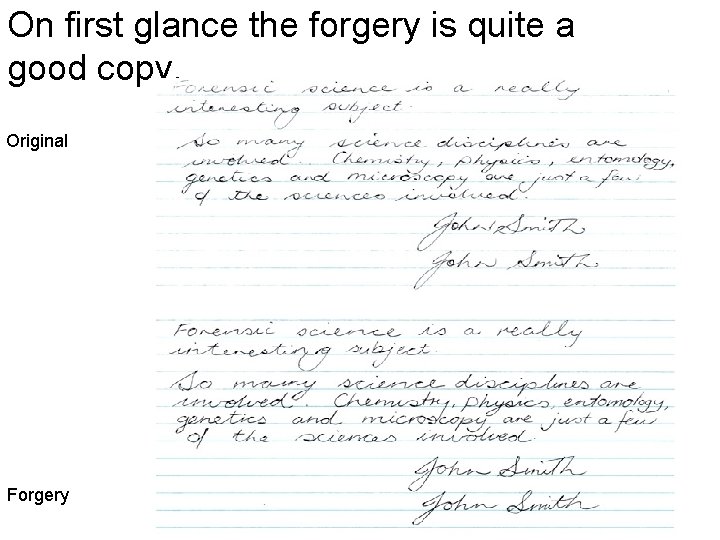 On first glance the forgery is quite a
good copy.
Forensic science is a really
interesting subject.
Original
So many science disciplines are
involved. Chemistry, physics, entomology,
genetics and microscopy are just a few
of the sciences involved.
John Smith
John Smith
Forensic science is a really
interesting subject.
So many science disciplines are
involved. Chemistry, physics, entomology,
genetics and microscopy are just a few
of the sciences involved.
John Smith
Forgery
John Smith